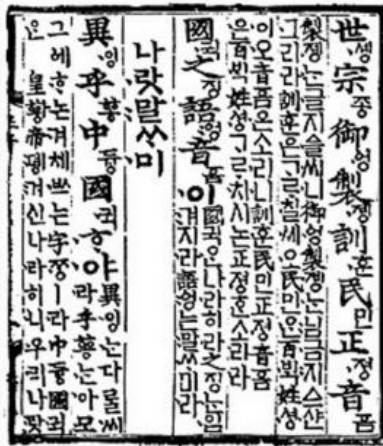 世솅宗종御엉製졩訓훈民민正졍音ᅙᅳᆷ
製졩는글지ᅀᅳᆯ씨니御엉製졩는님금지ᅀᅳ샨
그리라訓훈은ᄀᆞᄅᆞ칠씨오民민ᄋᆞᆫ百ᄇᆡᆨ姓셩
이오音ᅙᅳᆷ은소리니訓훈民민正졍音ᅙᅳᆷ
은百ᄇᆡᆨ姓셩ᄀᆞᄅᆞ치시논正졍ᄒᆞᆫ소리라
國귁之징語ᅌᅥᆼ音ᅙᅳᆷ이
國귁ᄋᆞᆫ나라히라之징ᄂᆞᆫ입
겨지라語ᅌᅥᆼ는말ᄊᆞ미라
나랏말ᄊᆞ미
異잉乎ᅘᅩᆼ中듕國귁ᄒᆞ야
異잉ᄂᆞᆫ다ᄅᆞᆯ씨
라乎ᅘᅩᆼᄂᆞᆫ아모
그ᅌᅦᄒᆞ논겨체ᄡᅳ는字ᄍᆞᆼㅣ라中듕國귁
은皇ᅘᅪᆼ帝뎽겨신나라히니우리나랏